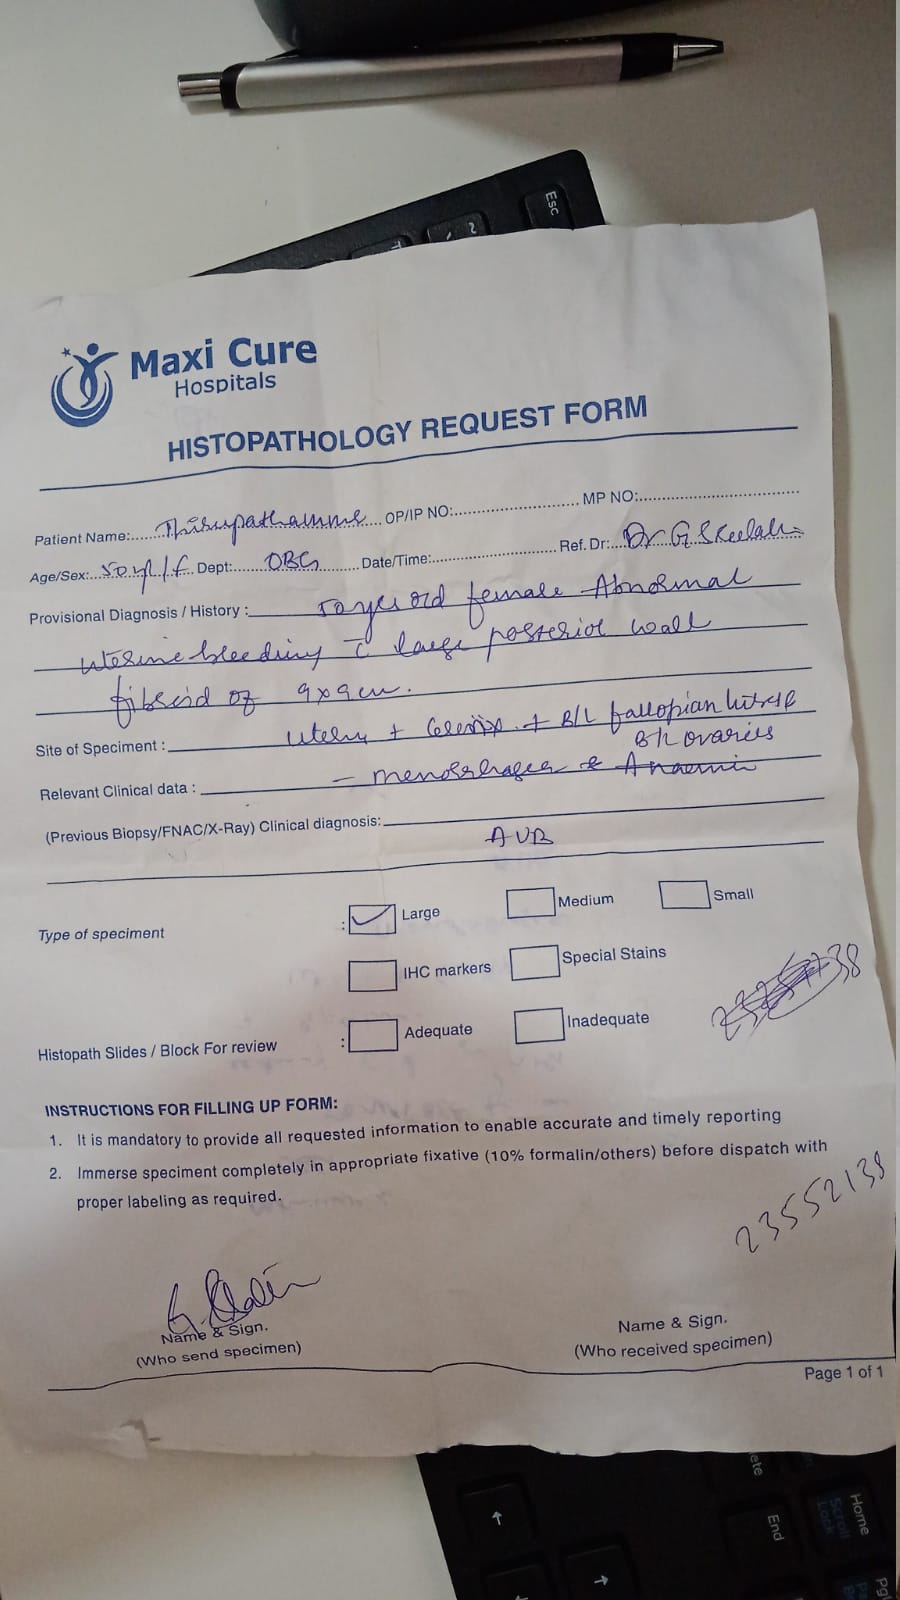 Maxi Cure
Hospitals
HISTOPATHOLOGY REQUEST FORM
Patient Name:..... Thirupathamma .... OP/IP NO:........................ MP NO:................................
Age/Sex: 50yr/f Dept: OBG Date/Time:........................ Ref. Dr: Dr G
Provisional Diagnosis / History : 50 year old female Abnormal
uterine bleeding c̄ large posterior wall
fibroid of 9x9cm.
Site of Speciment : uterus + cervix + B/L fallopian tubes &
B/L ovaries
Relevant Clinical data : - menorrhagea & Anaemia
(Previous Biopsy/FNAC/X-Ray) Clinical diagnosis:
AUB
Type of speciment : Large Medium Small
IHC markers Special Stains
Histopath Slides / Block For review : Adequate Inadequate
INSTRUCTIONS FOR FILLING UP FORM:
1. It is mandatory to provide all requested information to enable accurate and timely reporting
2. Immerse speciment completely in appropriate fixative (10% formalin/others) before dispatch with
proper labeling as required.
23552138
Name & Sign.
(Who send specimen)
Name & Sign.
(Who received specimen)
Page 1 of 1
Esc
~
ete
End
Home
Scroll
Lock